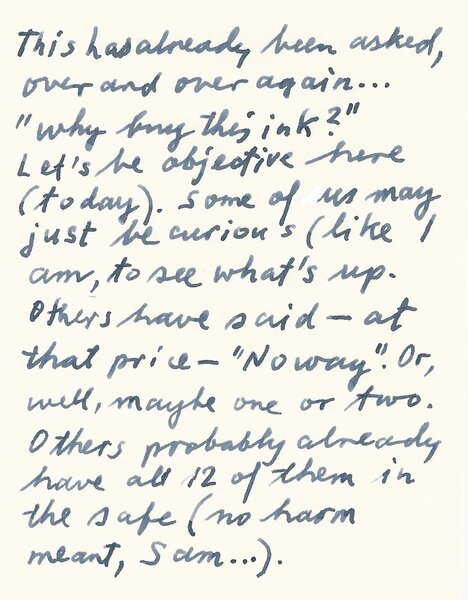 This has already been asked,
over and over again...
"why buy this ink?"
Let's be objective here
(today). Some of us may
just be curious (like I
am, to see what's up.
Others have said – at
that price – "No way". Or,
well, maybe one or two.
Others probably already
have all 12 of them in
the safe (no harm
meant, Sam...).